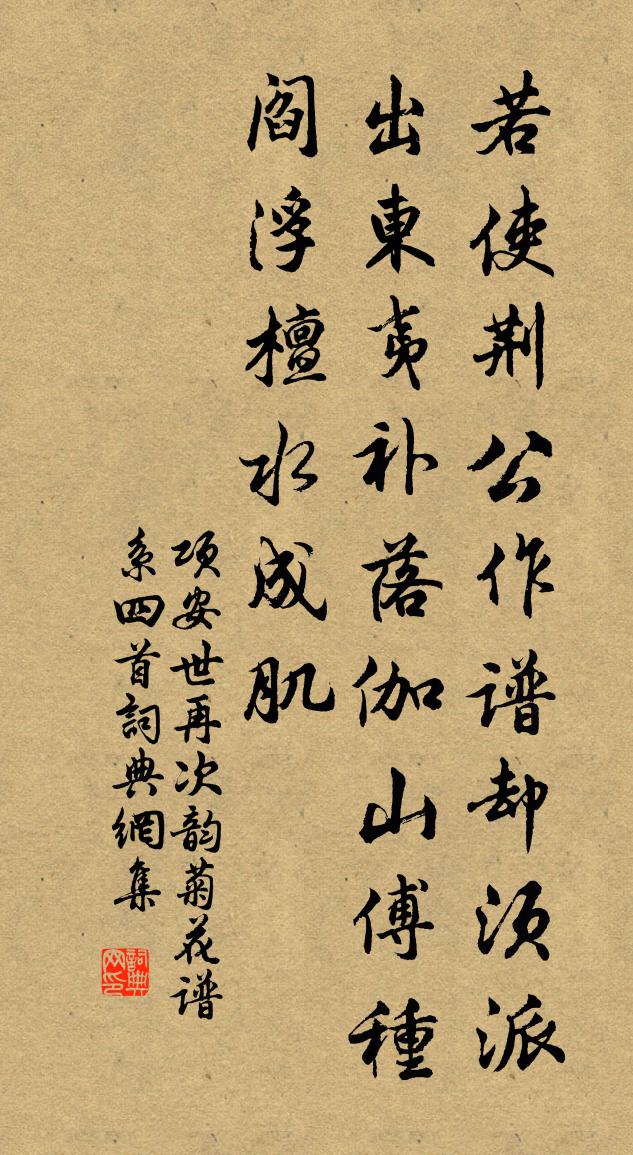 若使荆公作谱却须派
出東夷补落伽山傅種
阎浮檀水成肌
项安世再次韵菊花谱
系四首詞典網集
詞典
网印